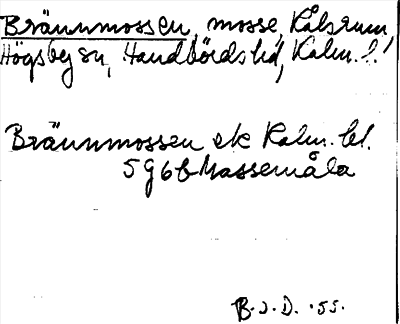 Bräunmossen, mosse, Kålsrum,
Högsby sn, Handbörds hd, Kalm. l.
Bräunmossen ek Kalm. bl.
5 g 6 b Massemåla
B.J.D. '55.